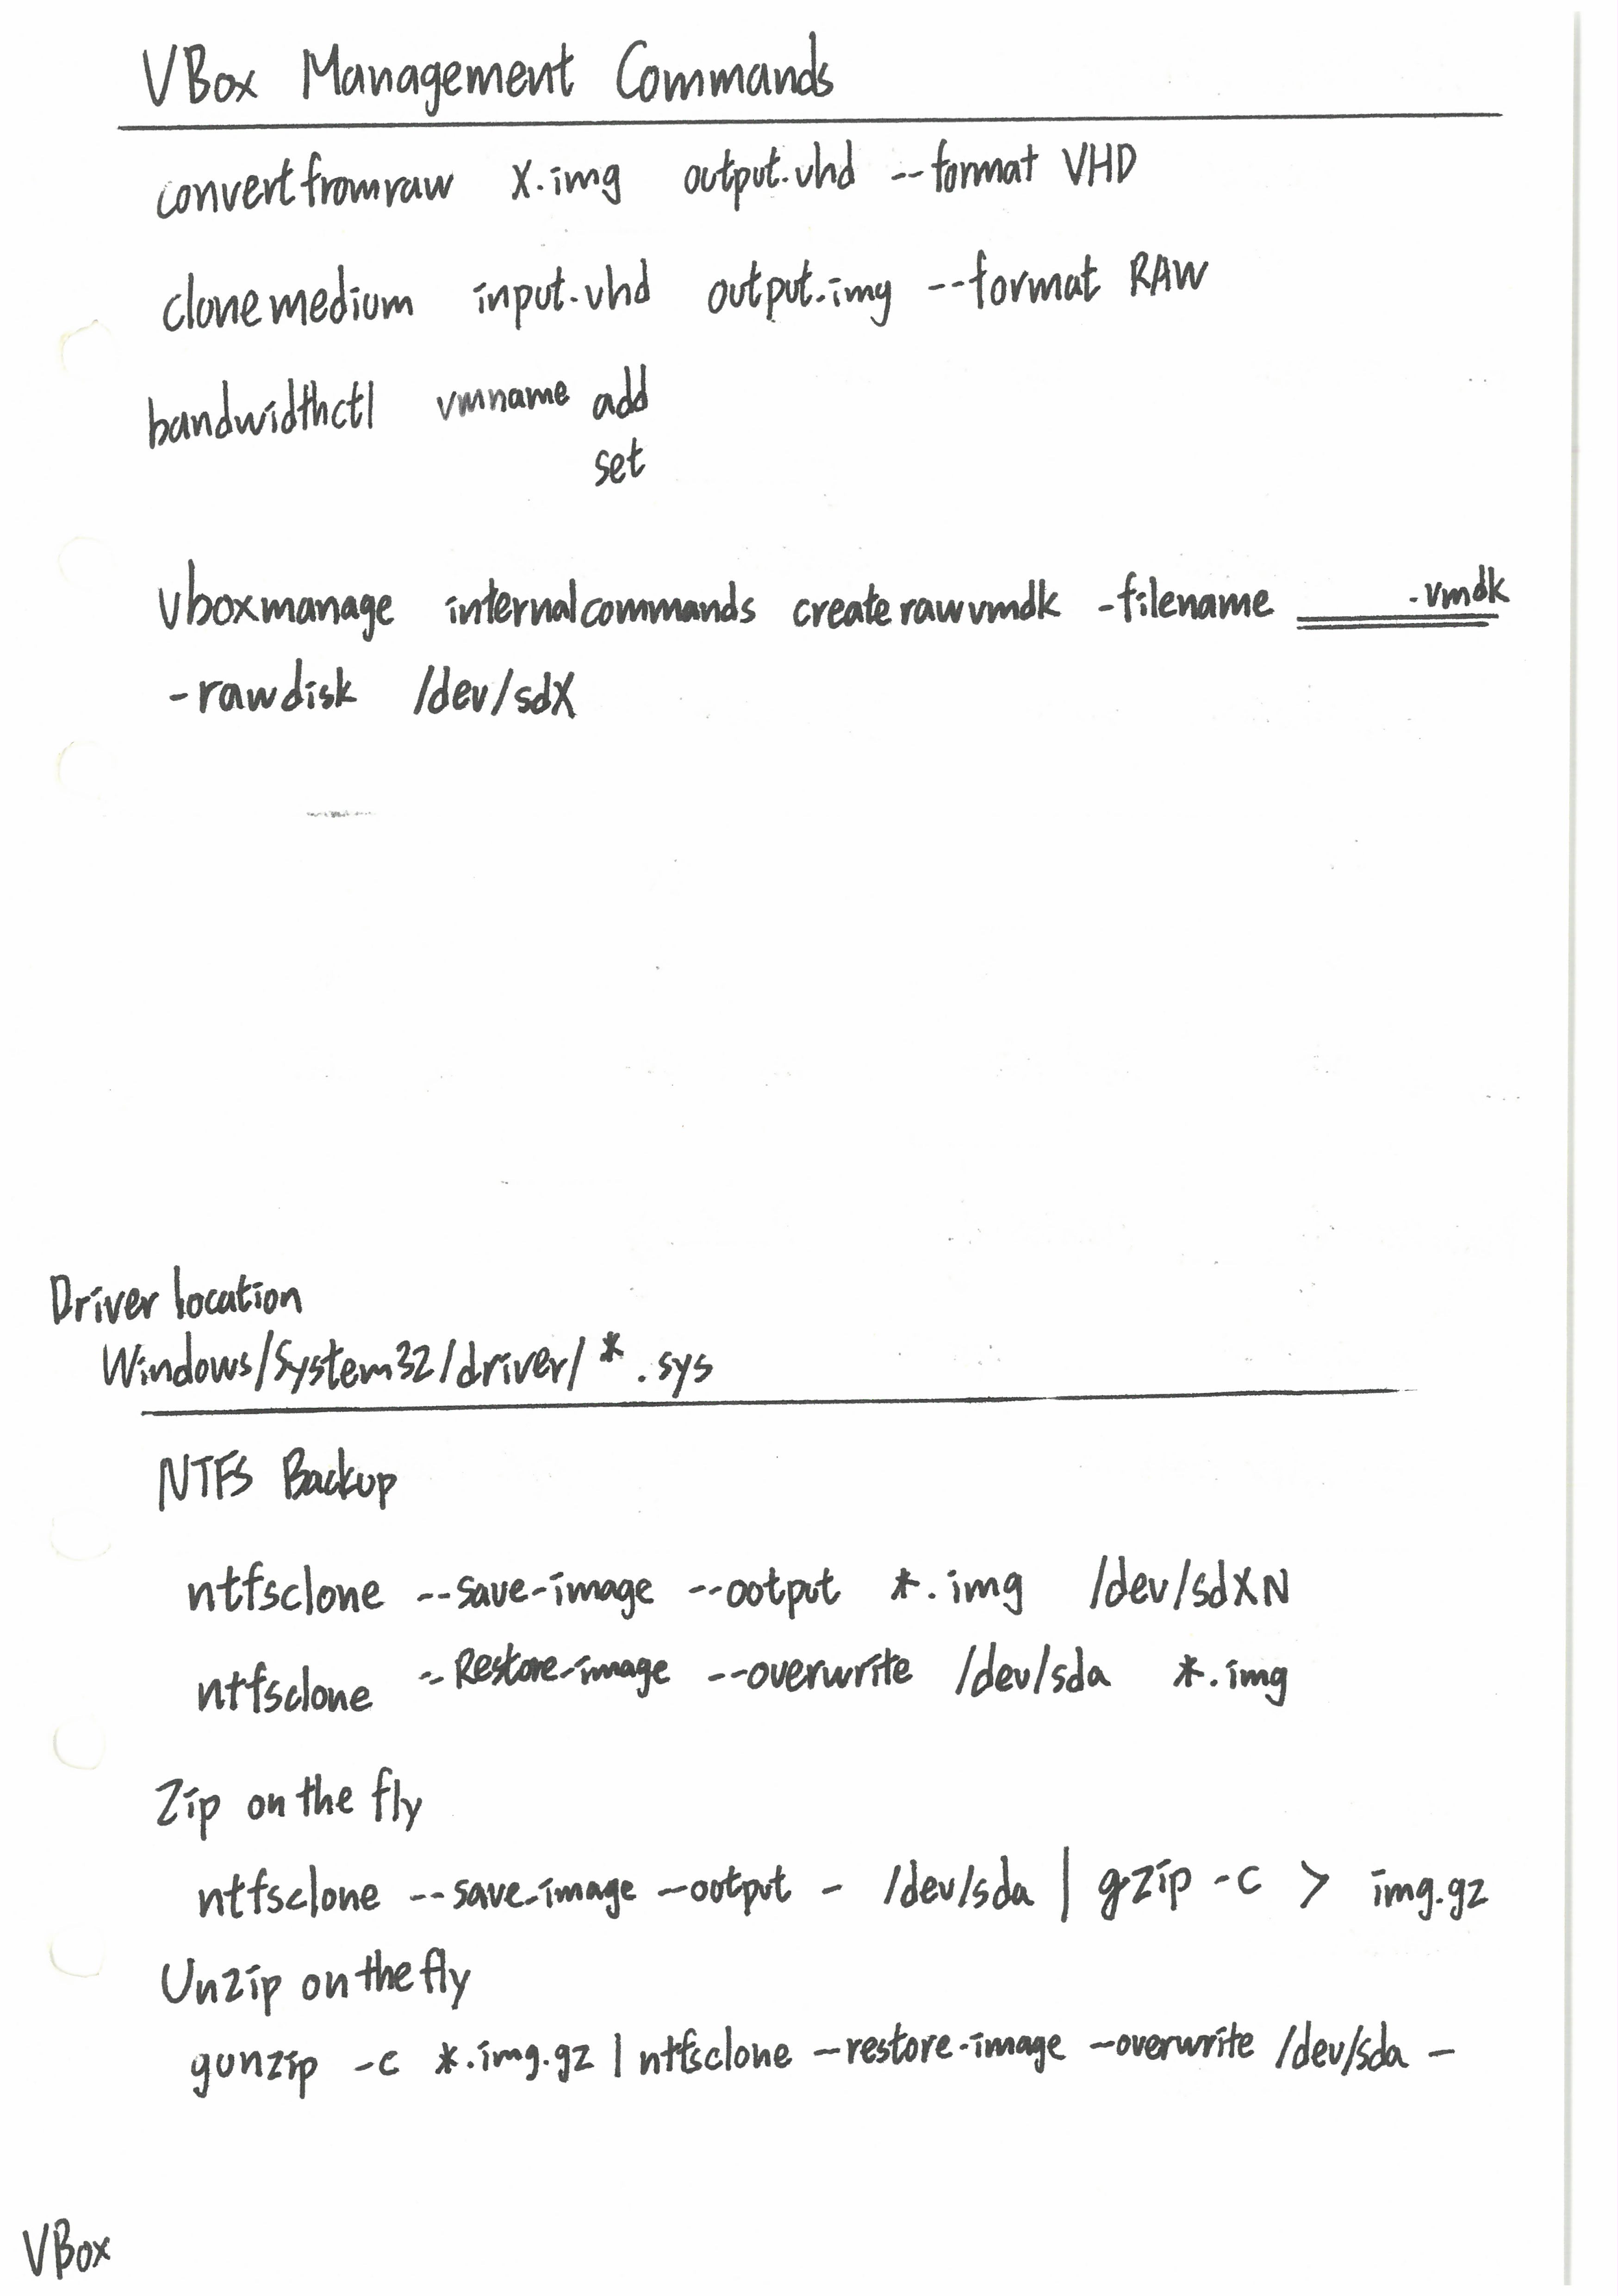 VBox Management Commands
convertfromraw X.img output.vhd --format VHD
clonemedium input.vhd output.img --format RAW
bandwidthctl vmname add
set
Vboxmanage internalcommands createrawvmdk -filename ______.vmdk
-rawdisk /dev/sdX
Driver location
Windows/System32/driver/*.sys
NTFS Backup
ntfsclone --save-image --output *.img /dev/sdXN
ntfsclone --Restore-image --overwrite /dev/sda *.img
Zip on the fly
ntfsclone --save-image --output - /dev/sda | gzip -c > img.gz
Unzip on the fly
gunzip -c *.img.gz | ntfsclone --restore-image --overwrite /dev/sda -
VBox